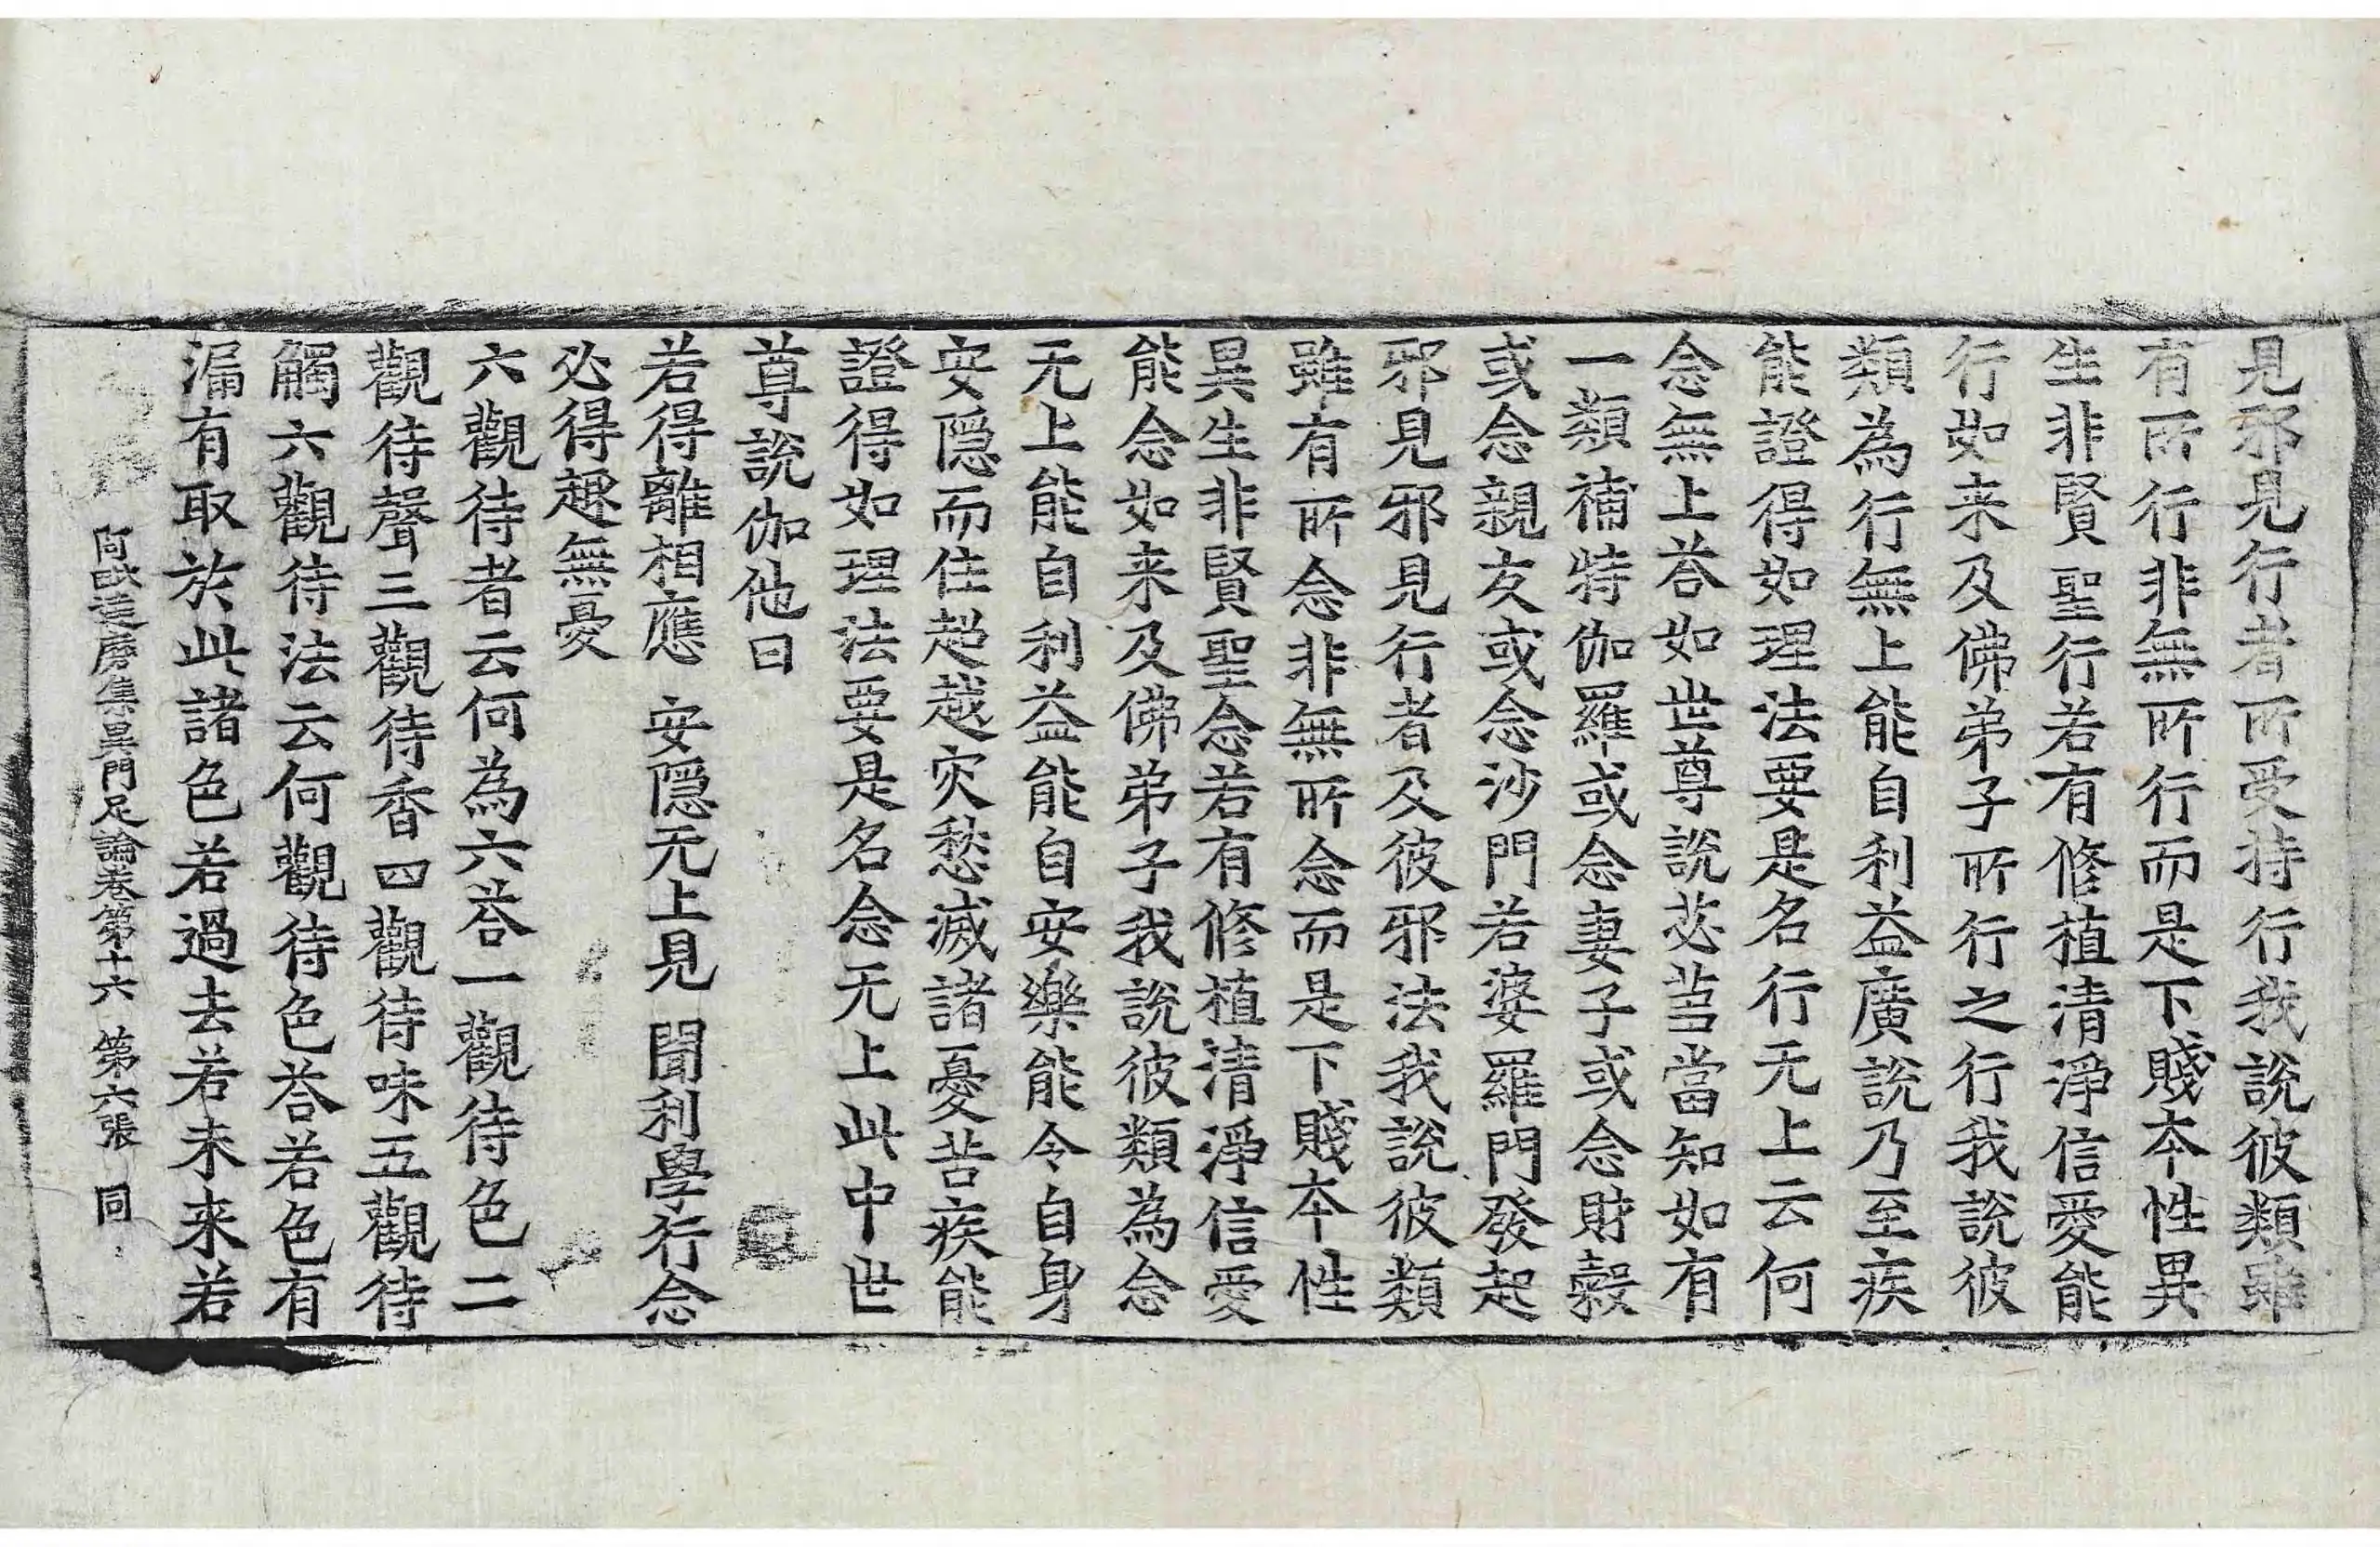 見邪見行者所受持行我說彼類雖
有所行非無所行而是下賤本性異
生非賢聖行若有修植清淨信愛能
行如来及佛弟子所行之行我說彼
類為行無上能自利益廣說乃至疾
能證得如理法要是名行无上云何
念無上荅如世尊說苾芻當知如有
一類補特伽羅或念妻子或念財穀
或念親友或念沙門若婆羅門發起
邪見邪見行者及彼邪法我說彼類
雖有所念非無所念而是下賤本性
異生非賢聖念若有修植清淨信愛
能念如来及佛弟子我說彼類為念
无上能自利益能自安樂能令自身
安隱而住超越灾愁滅諸憂苦疾能
證得如理法要是名念无上此中世
尊說伽他曰
若得離相應 安隱无上見 聞利學行念
必得趣無憂
六觀待者云何為六荅一觀待色二
觀待聲三觀待香四觀待味五觀待
觸六觀待法云何觀待色荅若色有
漏有取於此諸色若過去若未来若
阿毗達磨集異門足論卷第十六 第六張 同